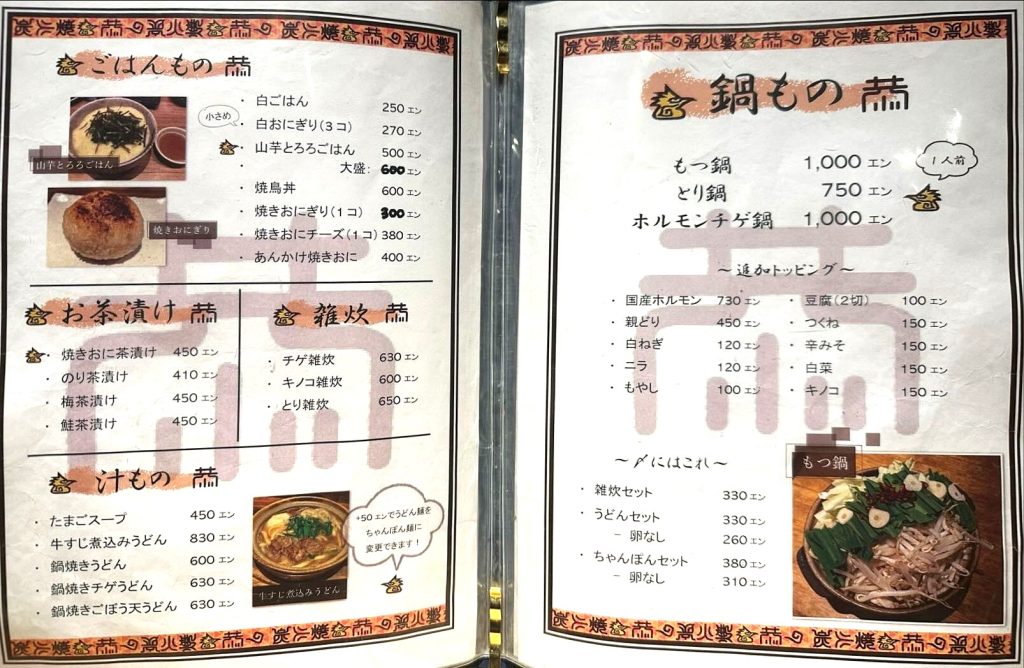 ごはんもの
白ごはん 250エン
小さめ
白おにぎり(3コ) 270エン
山芋とろろごはん 500エン
大盛: 600エン
焼鳥丼 600エン
焼きおにぎり(1コ) 300エン
焼きおにチーズ(1コ) 380エン
あんかけ焼きおに 400エン
山芋とろろごはん
焼きおにぎり
お茶漬け
焼きおに茶漬け 450エン
のり茶漬け 410エン
梅茶漬け 450エン
鮭茶漬け 450エン
雑炊
チゲ雑炊 630エン
キノコ雑炊 600エン
とり雑炊 650エン
汁もの
たまごスープ 450エン
牛すじ煮込みうどん 830エン
鍋焼きうどん 600エン
鍋焼きチゲうどん 630エン
鍋焼きごぼう天うどん 630エン
牛すじ煮込みうどん
+50エンでうどん麺を
ちゃんぽん麺に
変更できます!
鍋もの
もつ鍋 1,000エン
1人前
とり鍋 750エン
ホルモンチゲ鍋 1,000エン
~追加トッピング~
国産ホルモン 730エン
親どり 450エン
白ねぎ 120エン
ニラ 120エン
もやし 100エン
豆腐(2切) 100エン
つくね 150エン
辛みそ 150エン
白菜 150エン
キノコ 150エン
~〆にはこれ~
雑炊セット 330エン
うどんセット 330エン
- 卵なし 260エン
ちゃんぽんセット 380エン
- 卵なし 310エン
もつ鍋